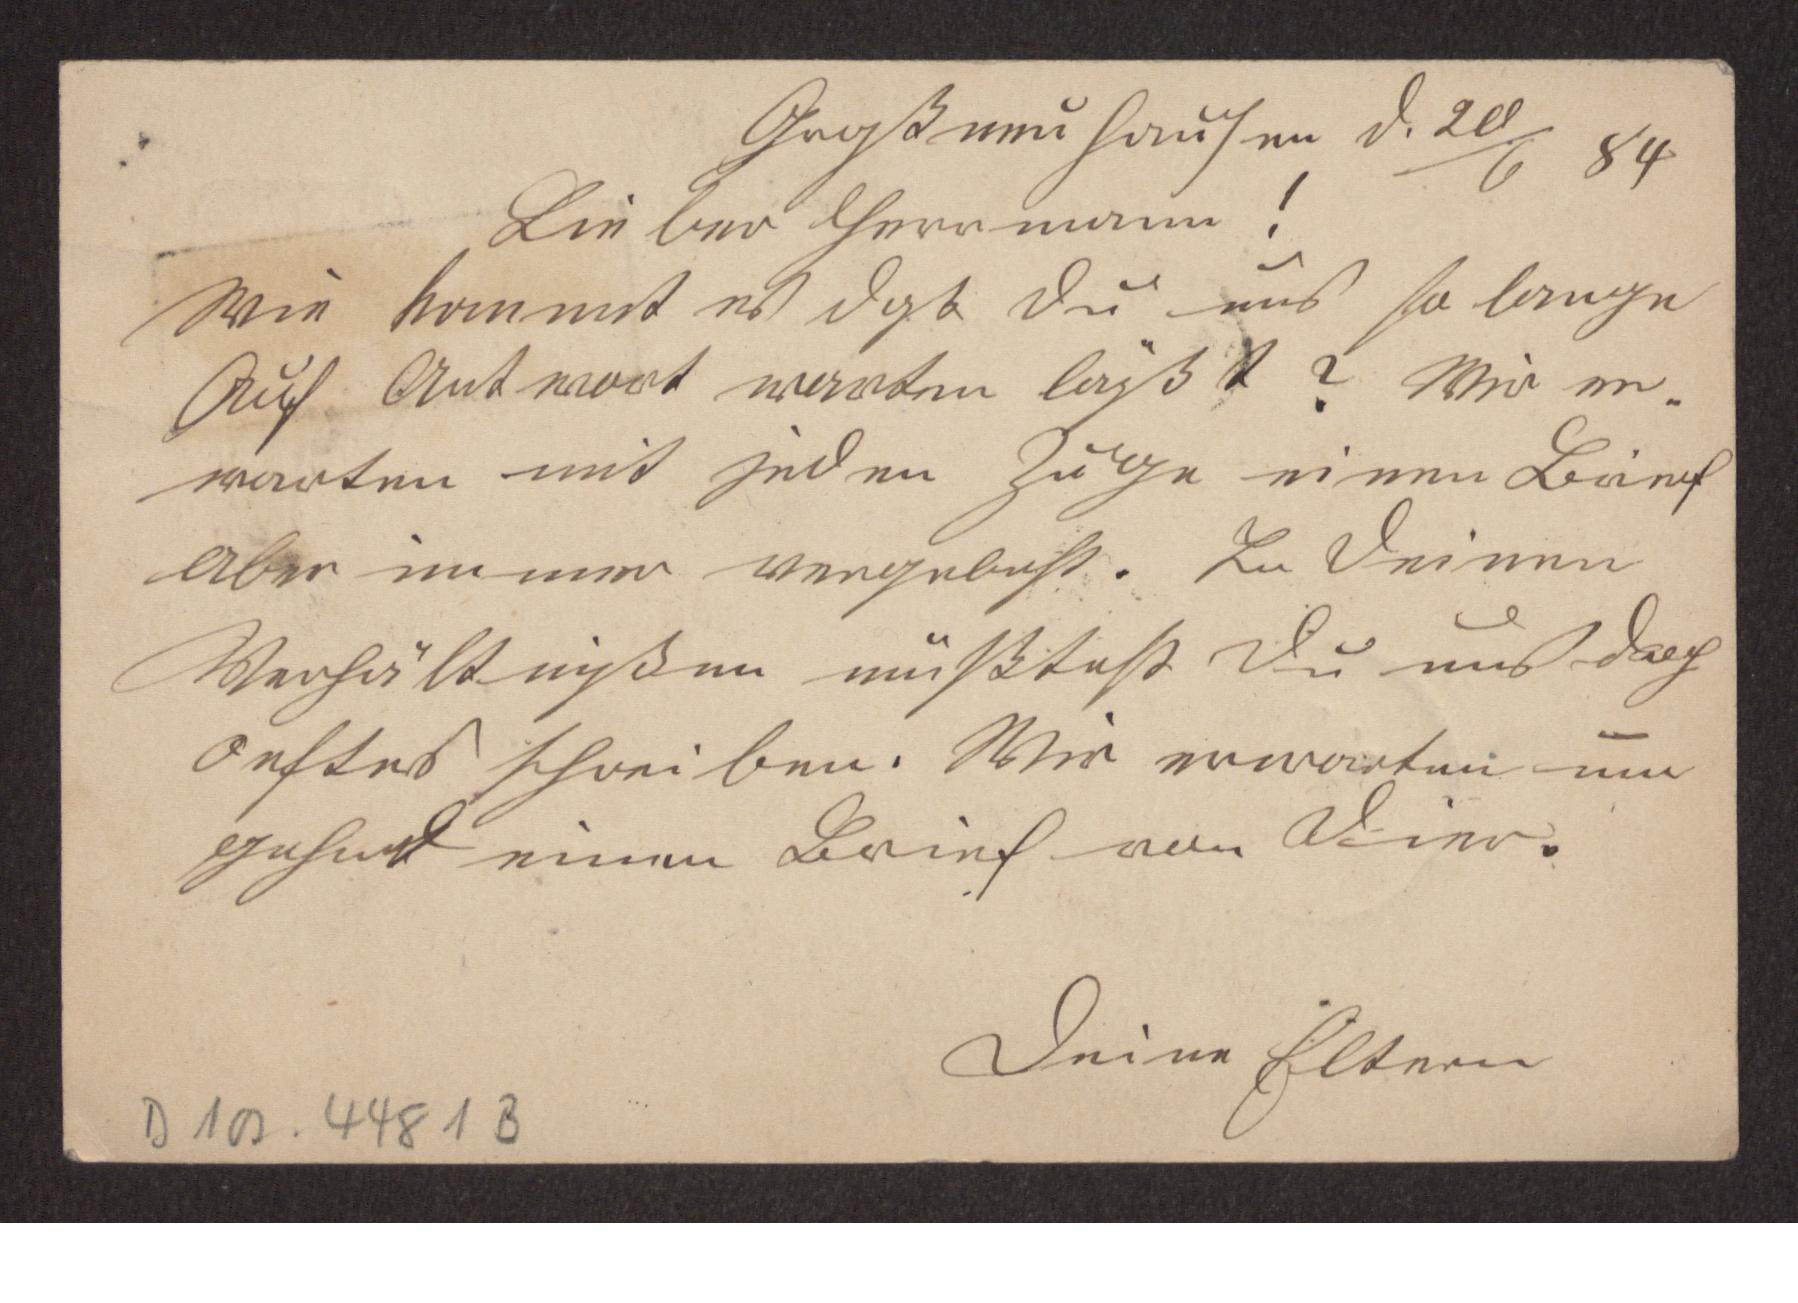 Großneuhausen d. 20/6 84
Lieber Herrmann!
Wie kommt es daß Du uns so lange
Auf Antwort warten läßt? Wir er-
warten mit jeden Zuge einen Brief
aber immer vergebest. In Deinen
Verhältnißen müßtest Du uns doch
oefters schreiben. Wir erwarten um
gehend einen Brief von Dier.
Deine Eltern
D 4481 B